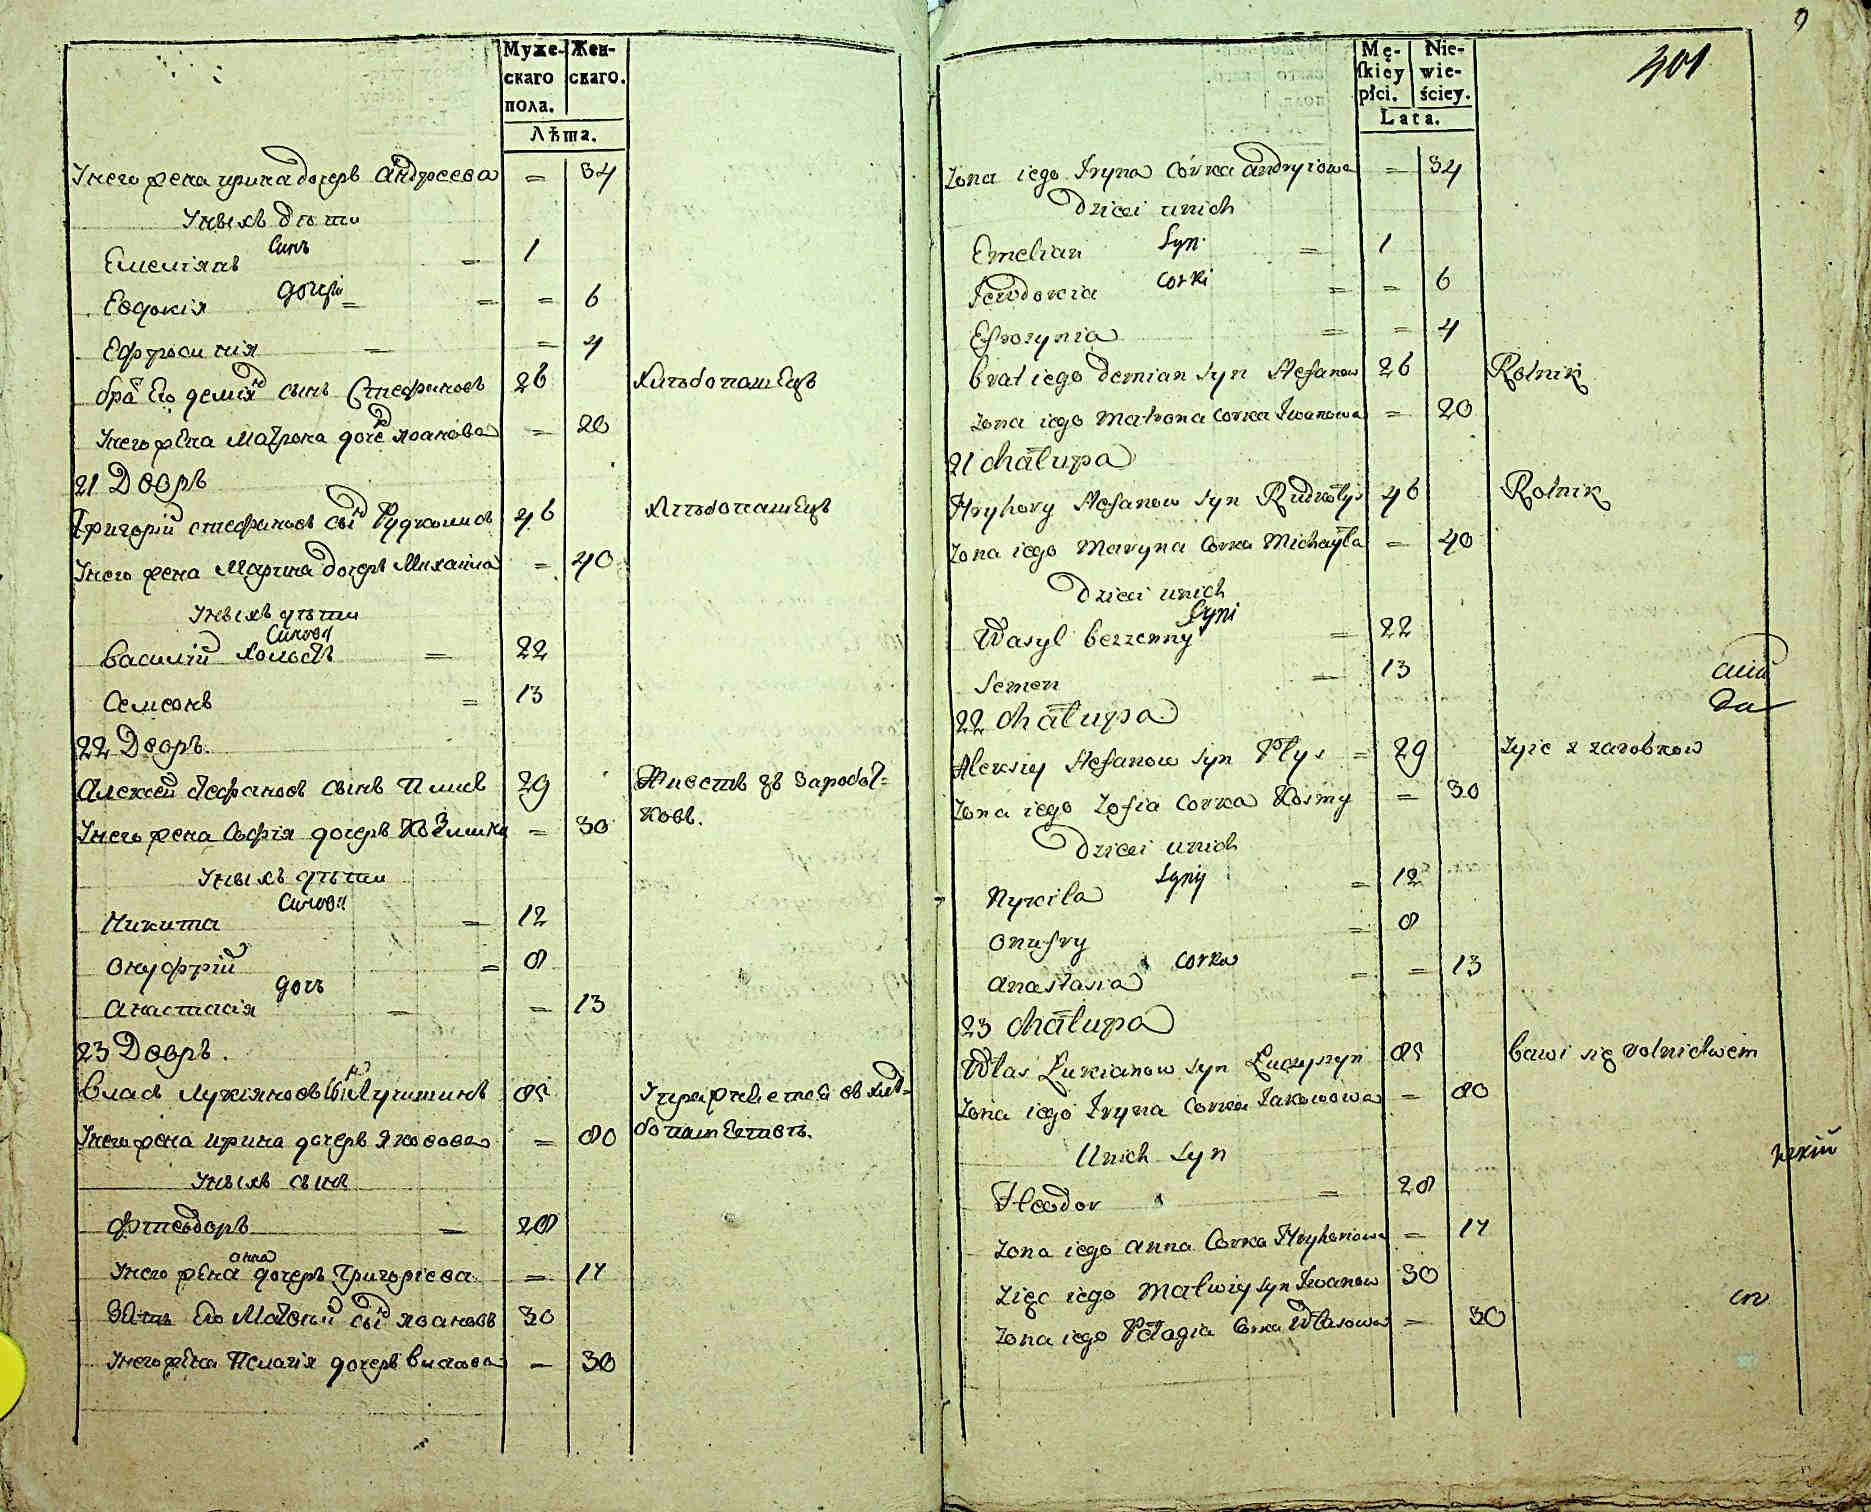 Муже-
скаго
пола.
Жен-
скаго.
Лѣта.
Унего жена ирина дочерь андреева = 34
Унихъ дѣти
Синъ
Емелiянъ = 1
дочери
Евдокiя = = = 6
Ефросинiя = = 4
братъ Его демiянъ сынъ Стефановъ 26 Хлѣбопашецъ
Унего жена Матрона дочеръ Иванова = 20
21 Дворъ
Григорiй стефановъ сынъ 46 Хлѣбопашецъ
Унего жена Марина дочерь Михаила = 40
Унихъ дѣти
Синови
Василiй холостъ = 22
Семеонъ = 13
22 Дворъ.
Алексей Стефановъ сынъ Плисъ 29 Живетъ зъ заробот-
ковъ.
Унего жена Софiя дочерь = 30
Унихъ дѣти
Синови
Никита = 12
Онуфрiй = 8
дочъ
Анастасiя = = 13
23 Дворъ.
Власъ Лукiяновъ сынъ Лучишинъ 85 Упражняется въ хлѣ-
бопашествѣ.
Унего жена ирина дочерь Яковова = 80
Унихъ сынъ
Фтеодоръ = 28
анна
Унего жена дочерь Григорiева = 17
Зять Его Матвiй сынъ Ивановъ 30
Унего жена Пелагiя дочерь власова = 30
9
401
Mę-
ſkiey
płci.
Nie-
wie-
ściey.
Lata.
Zona iego Iryna Córka andryiowa = 34
Dzieci unich
Syn
Emelian = 1
corki
Jewdokia = = 6
Efrozynia = = 4
brat iego demian syn Stefanow 26 Rolnik
Zona iego Matrona corka Iwanowa = 20
21 chałupa
Hryhory Stefanow syn 46 Rolnik
Zona iego Maryna Corka Michayła = 40
Dzieci unich
Syni
Wasyl bezzenny = 22
Semen = 13
22 chałupa
Alexiey Stefanow syn Płys = 29 zyie z zarobkow
Zona iego Zofia Corka Kosmy = 30
Dzieci unich
Synÿ
Nykita = 12
Onufry = 8
corka
Anastasia = = 13
23 chałupa
Włas Łukianow syn Łuczyszyn 85 bawi się rolnictwem
Zona iego Iryna Corka Jakowowa = 80
Unich syn
Fteodor = 28
Zona iego anna Corka Hryhoriowa = 17
Zięc iego Matwiey syn Iwanow 30
Zona iego Pełagia Corka Własowa = 30